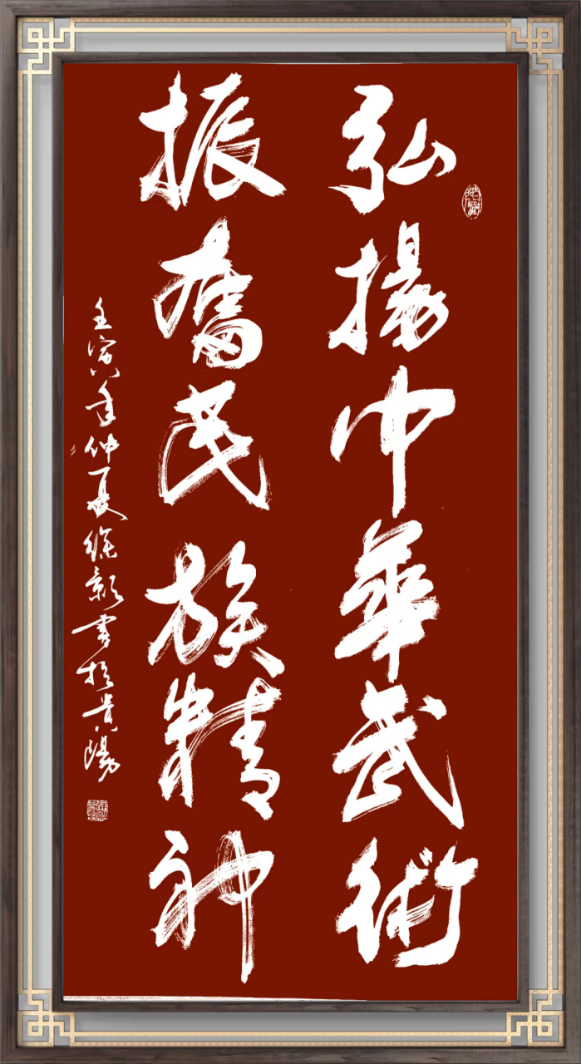 弘揚中華武術
振奮民族精神
壬寅年仲夏 彰書於貴陽